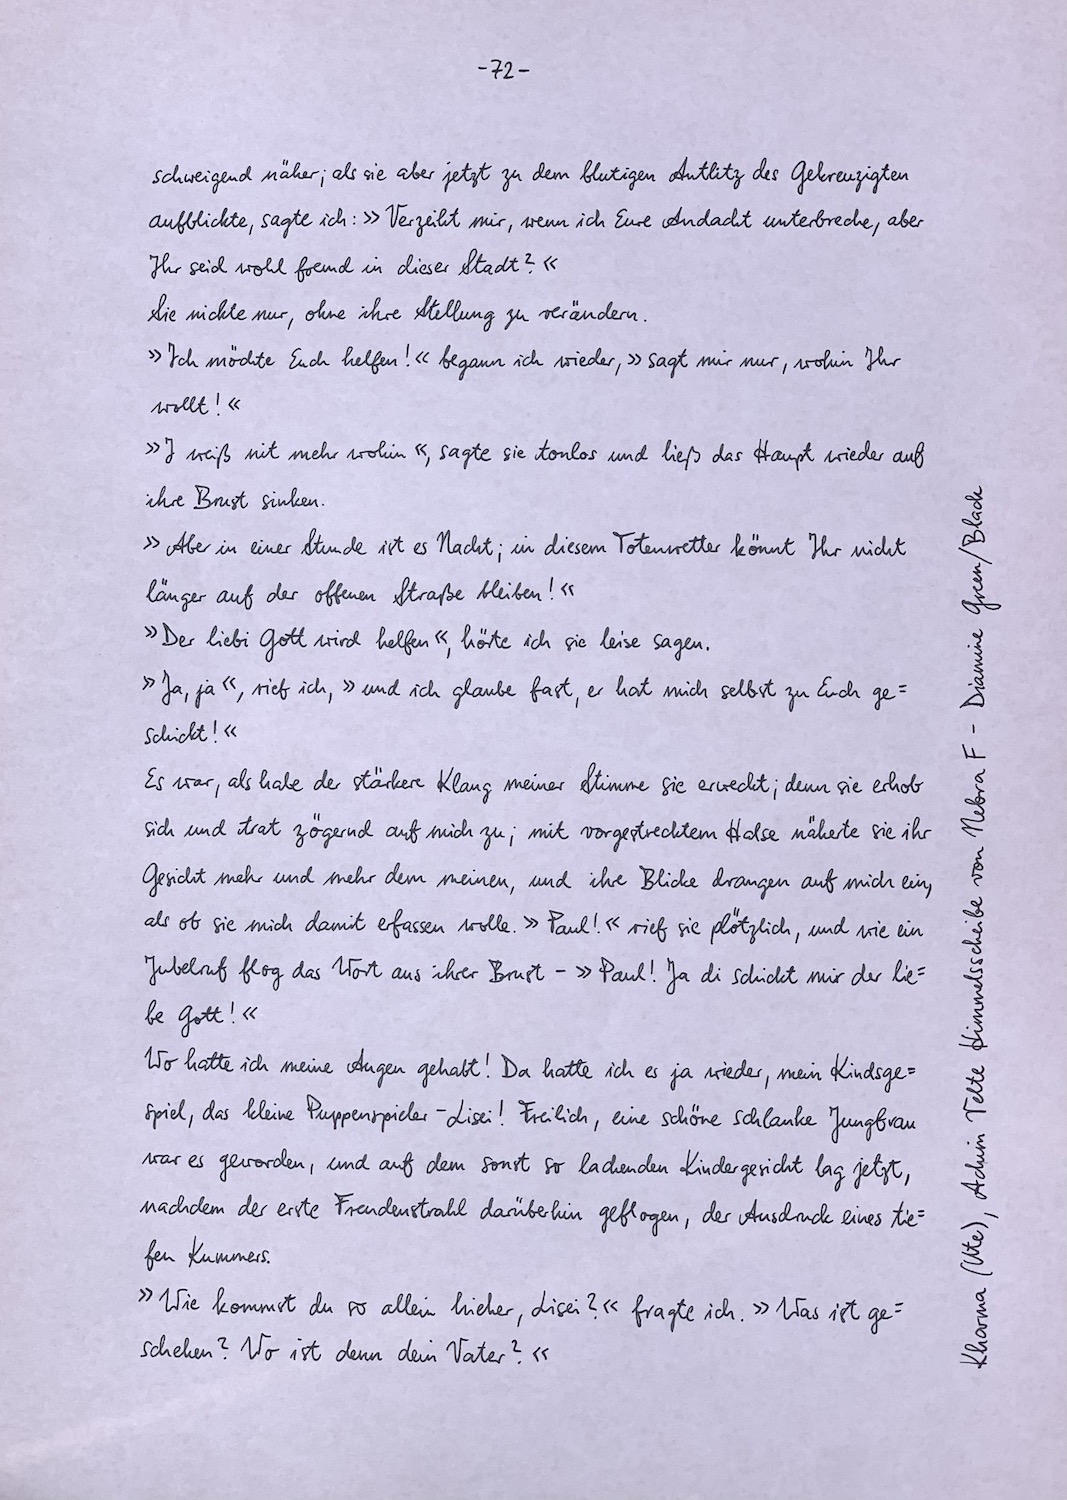 -72-
schweigend näher; als sie aber jetzt zu dem blutigen Antlitz des Gekreuzigten
aufblickte, sagte ich: »Verzeiht mir, wenn ich Eure Andacht unterbreche, aber
Ihr seid wohl fremd in dieser Stadt?«
Sie nickte nur, ohne ihre Stellung zu verändern.
»Ich möchte Euch helfen!« begann ich wieder, »sagt mir nur, wohin Ihr
wollt!«
»I weiß nit mehr wohin«, sagte sie tonlos und ließ das Haupt wieder auf
ihre Brust sinken.
»Aber in einer Stunde ist es Nacht; in diesem Totenwetter könnt Ihr nicht
länger auf der offenen Straße bleiben!«
»Der liebi Gott wird helfen«, hörte ich sie leise sagen.
»Ja, ja«, rief ich, »und ich glaube fast, er hat mich selbst zu Euch ge=
schickt!«
Es war, als habe der stärkere Klang meiner Stimme sie erweckt; denn sie erhob
sich und trat zögernd auf mich zu; mit vorgestrecktem Halse näherte sie ihr
Gesicht mehr und mehr dem meinen, und ihre Blicke drangen auf mich ein,
als ob sie mich damit erfassen wolle. »Paul!« rief sie plötzlich, und wie ein
Jubelruf flog das Wort aus ihrer Brust - »Paul! Ja di schickt mir der lie=
be Gott!«
Wo hatte ich meine Augen gehabt! Da hatte ich es ja wieder, mein Kindsge=
spiel, das kleine Puppenspieler-Lisei! Freilich, eine schöne schlanke Jungfrau
war es geworden, und auf dem sonst so lachenden Kindergesicht lag jetzt,
nachdem der erste Freudenstrahl darüberhin geflogen, der Ausdruck eines tie=
fen Kummers.
»Wie kommst du so allein hieher, Lisei?« fragte ich. »Was ist ge=
schehen? Wo ist denn dein Vater?«
Kharma (Ute), Achim Velte Himmelsscheibe von Nebra F - Diamine Green/Black